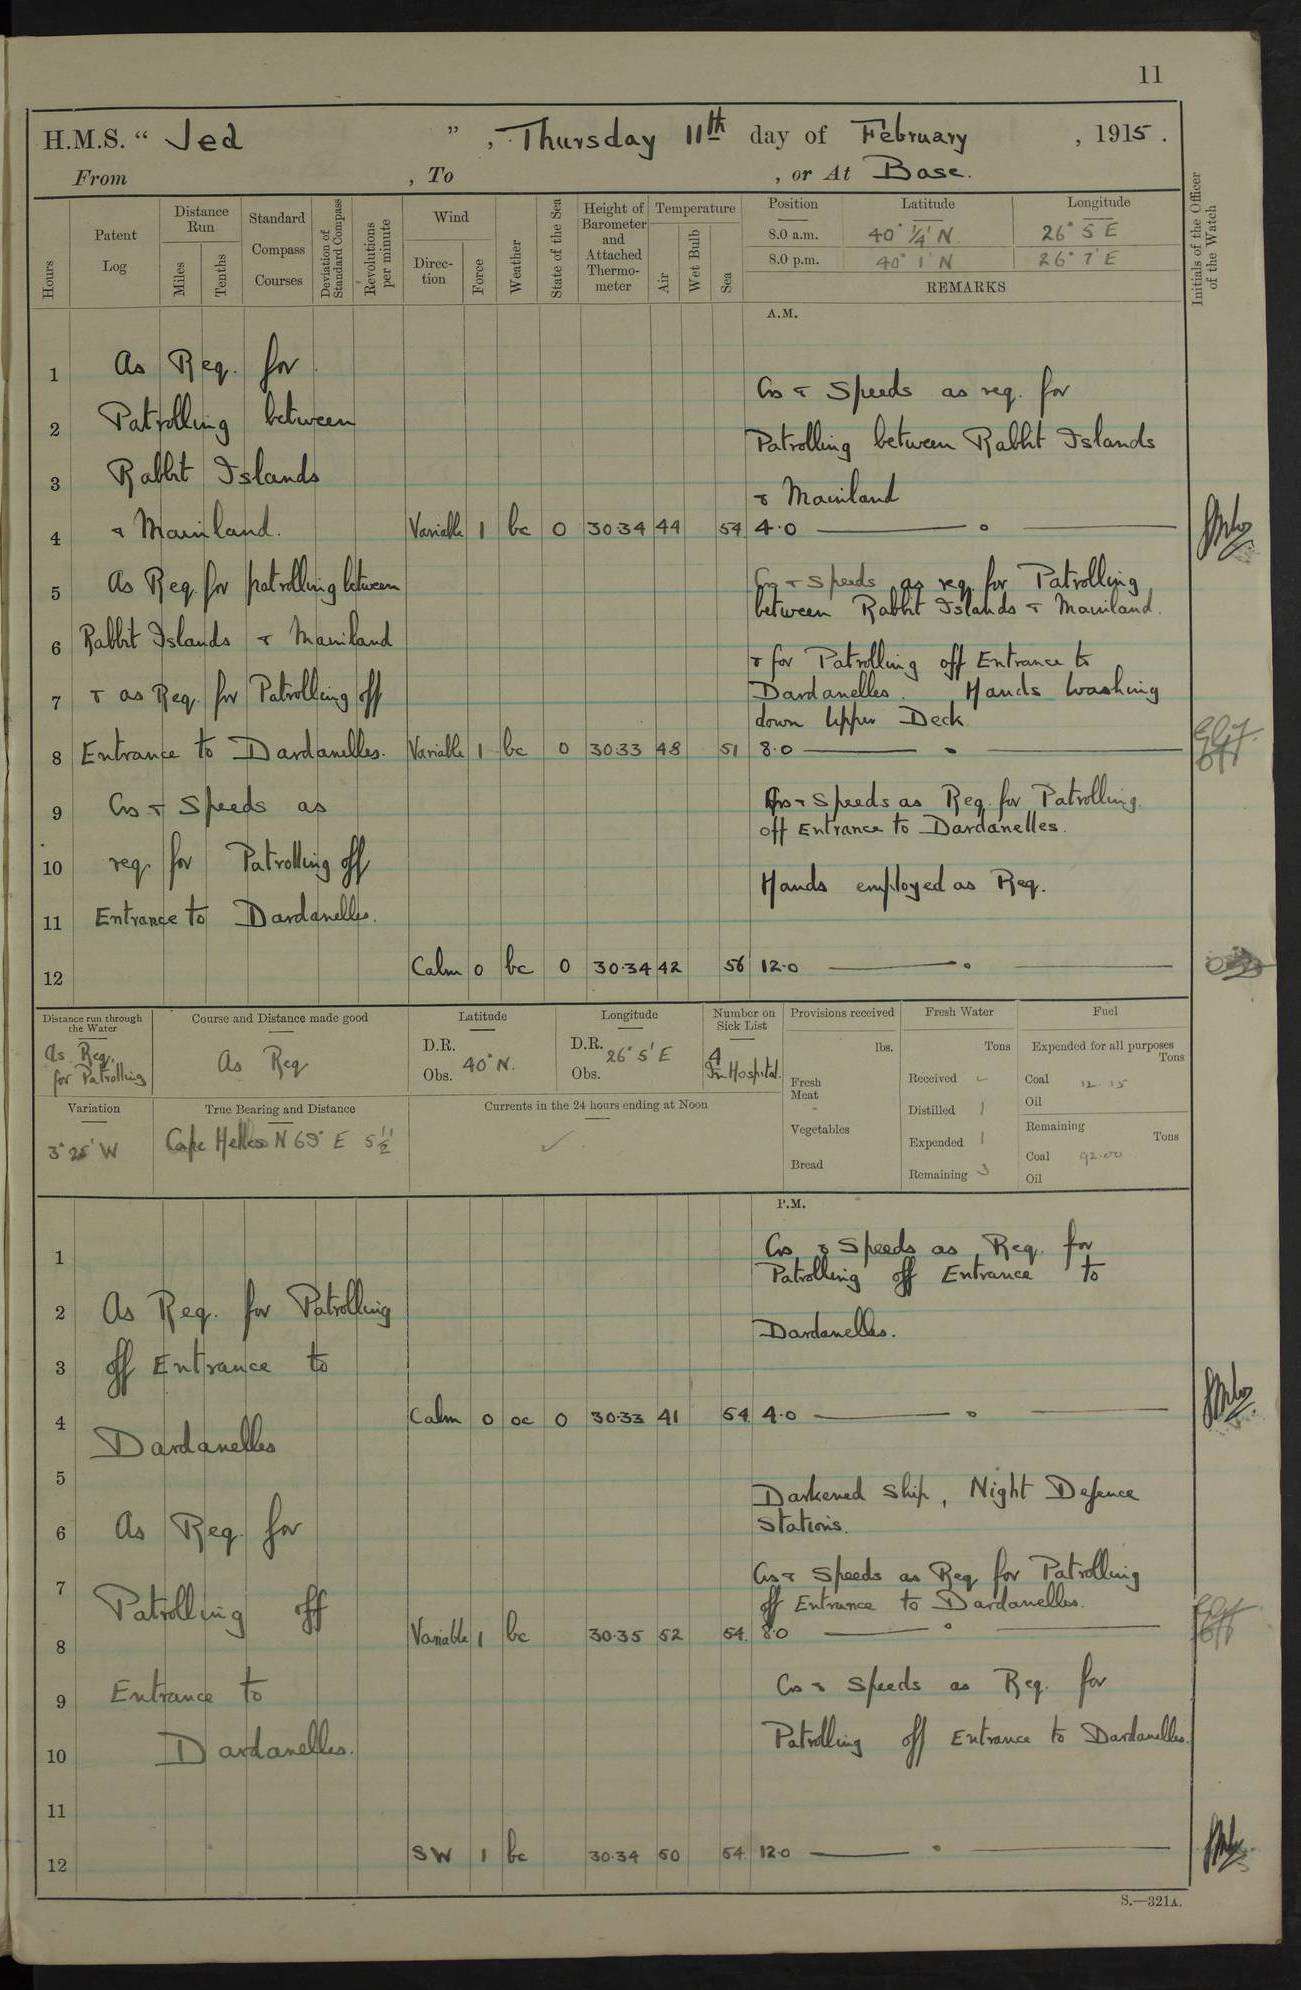 11
H.M.S. “ Jed ”, Thursday 11th day of February, 1915.
From , To , or At Base.
Hours
Patent Log
Distance Run
Miles
Tenths
Standard Compass Courses
Deviation of Standard Compass
Revolutions per minute
Wind
Direc-tion
Force
Weather
State of the Sea
Height of Barometer and Attached Thermo-meter
Temperature
Air
Wet Bulb
Sea
Position Latitude Longitude
8.0 a.m. 40° ¼' N 26° 5' E
8.0 p.m. 40° 1' N 26° 7' E
REMARKS
Initials of the Officer of the Watch
A.M.
1 As Req. for
Cos & Speeds as req. for
2 Patrolling between
Patrolling between Rabbit Islands
3 Rabbit Islands
& Mainland
4 & Mainland. Variable 1 bc 0 30.34 44 54 4.0
5 As Req. for patrolling between
Cos & Speeds as req. for Patrolling
between Rabbit Islands & Mainland.
6 Rabbit Islands & Mainland
& for Patrolling off Entrance to
7 & as Req. for Patrolling off
Dardanelles. Hands washing
down Upper Deck
8 Entrance to Dardanelles. Variable 1 bc 0 30.33 48 51 8.0
9 Cos & Speeds as
Cos & Speeds as Req. for Patrolling
off Entrance to Dardanelles.
10 req. for Patrolling off
Hands employed as Req.
11 Entrance to Dardanelles.
12 Calm 0 bc 0 30.34 42 56 12.0
Distance run through the Water
As Req. for Patrolling
Course and Distance made good
As Req
Latitude
D.R. 40° N.
Obs.
Longitude
D.R. 26° 5' E
Obs.
Number on Sick List
4
In Hospital.
Provisions received
lbs.
Fresh Meat
Vegetables
Bread
Fresh Water
Tons
Received
Distilled 1
Expended 1
Remaining 3
Fuel
Expended for all purposes
Tons
Coal 12 15
Oil
Remaining
Tons
Coal 92.00
Oil
Variation
3° 25' W
True Bearing and Distance
Cape Helles N 69° E 5½
Currents in the 24 hours ending at Noon
✓
P.M.
1 Cos & Speeds as Req. for
Patrolling off Entrance to
2 As Req. for Patrolling
Dardanelles.
3 off Entrance to
4 Calm 0 oc 0 30.33 41 54 4.0
Dardanelles
5 Darkened Ship, Night Defence
Stations.
6 As Req. for
7 Cos & Speeds as Req for Patrolling
Patrolling off
off Entrance to Dardanelles.
8 Variable 1 bc 30.35 52 54 8.0
9 Entrance to
Cos & Speeds as Req. for
10 Dardanelles.
Patrolling off Entrance to Dardanelles.
11
12 SW 1 bc 30.34 50 54 12.0
S.—321A.